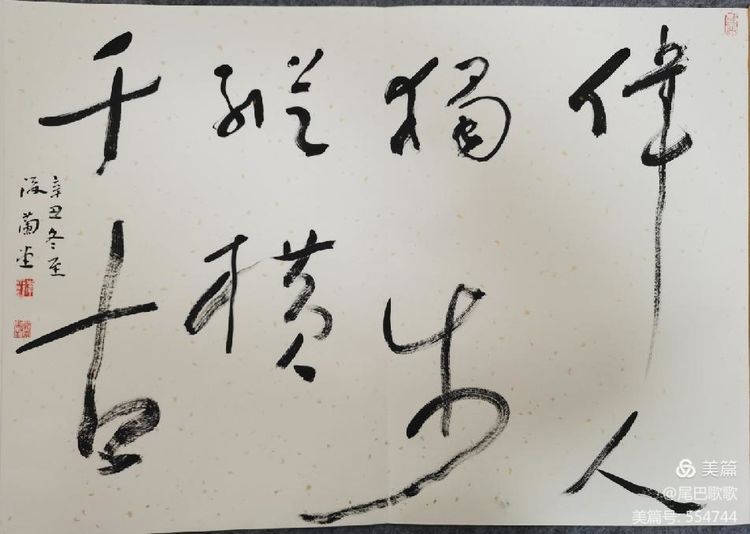 偉人
獨步
縱橫
千古
辛丑冬至
蘭堂
美篇
@尾巴歌歌
美篇号: 554744